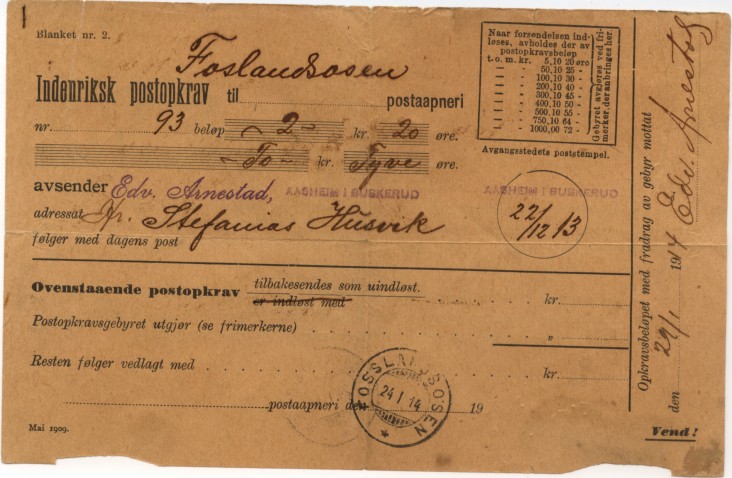 Blanket nr. 2.
Foslandsosen
Indenriksk postopkrav til postaapneri
nr. 93 beløp - 2 - kr. 20 øre.
- To - kr. Tyve øre.
avsender Edv. Arnestad, AASHEIM I BUSKERUD
adressat Hr. Stefanias Husvik
følger med dagens post
Naar forsendelsen indløses, avholdes der av postopkravsbeløp
t. o. m. kr. 5,10 20 øre
50,10 25 -
100,10 30 -
200,10 40 -
300,10 45 -
400,10 50 -
500,10 55 -
750,10 64 -
1000,00 72 -
Gebyret avgjøres ved frimerker, der anbringes her.
Avgangsstedets poststempel.
AASHEIM I BUSKERUD
22/12 13
Ovenstaaende postopkrav tilbakesendes som uindløst.
er indløst med kr.
Postopkravsgebyret utgjør (se frimerkerne) "
Resten følger vedlagt med kr.
postaapneri den 19
FOSSLANDSOSEN
24 I 14
Mai 1909.
Opkravsbeløpet med fradrag av gebyr mottat
den 29/1 1914 Edv. Arnestad
Vend!